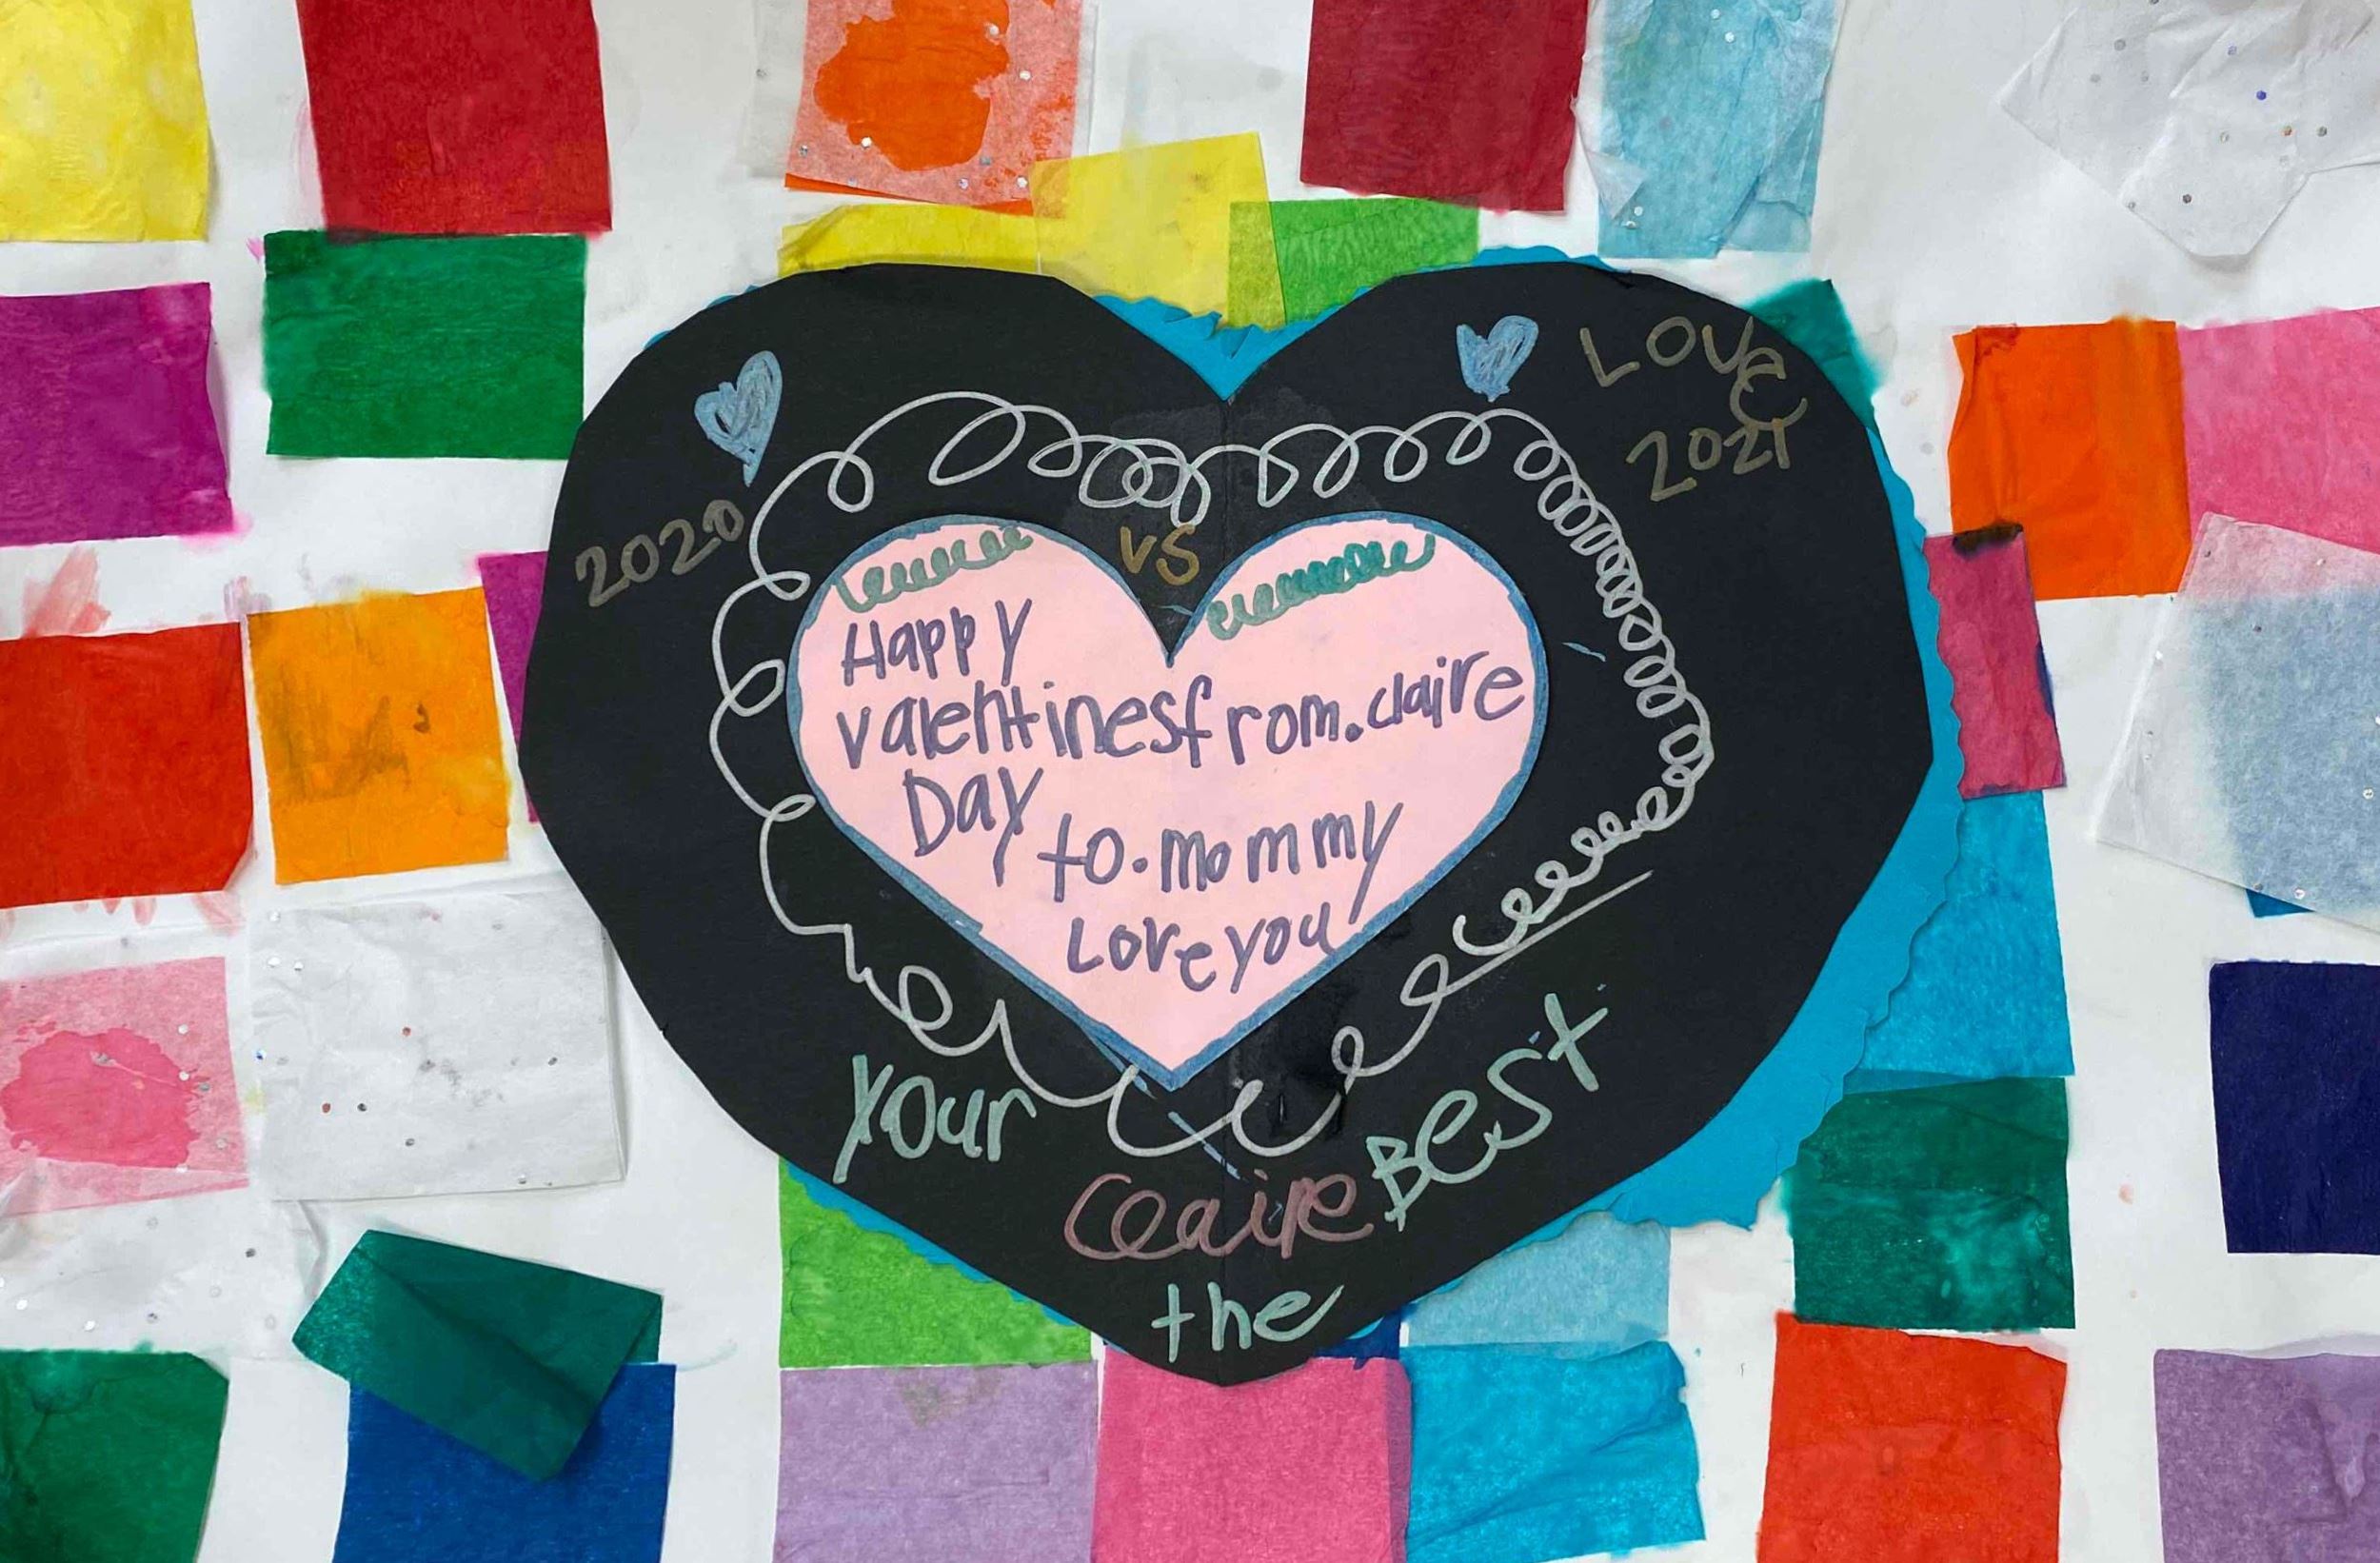 LOVE
2021
2020
VS
Happy
valentines from. claire
Day
to. mommy
Love you
your
Claire
Best
the